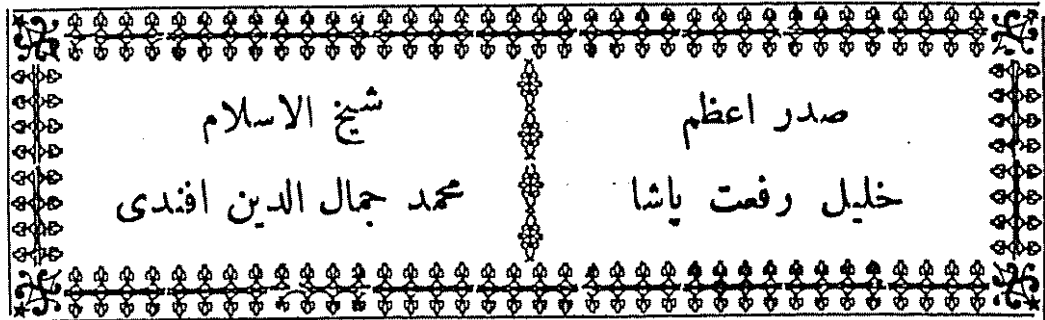 صدر اعظم
خليل رفعت پاشا
شيخ الاسلام
محمد جمال الدين افندى